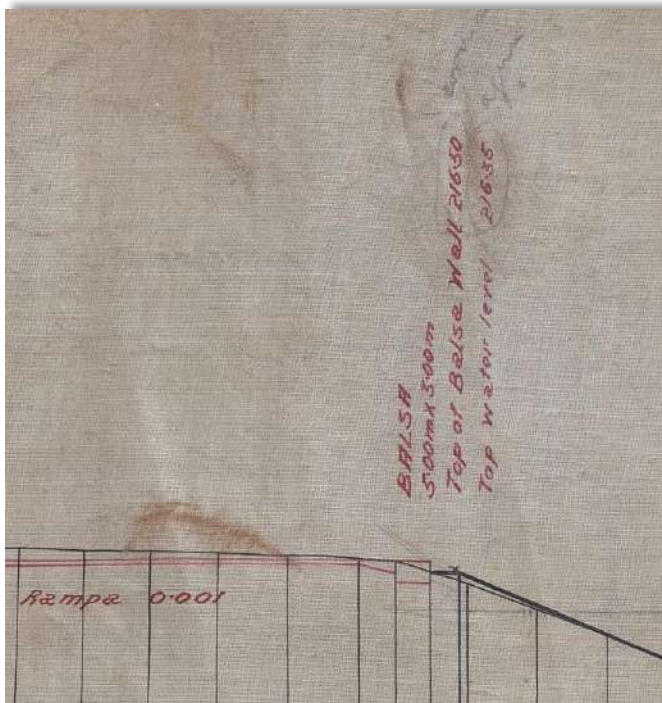 BALSA
5·00m x 5·00m
Top of Balsa Wall 216·50
Top water level 216·35
Rampa 0·001